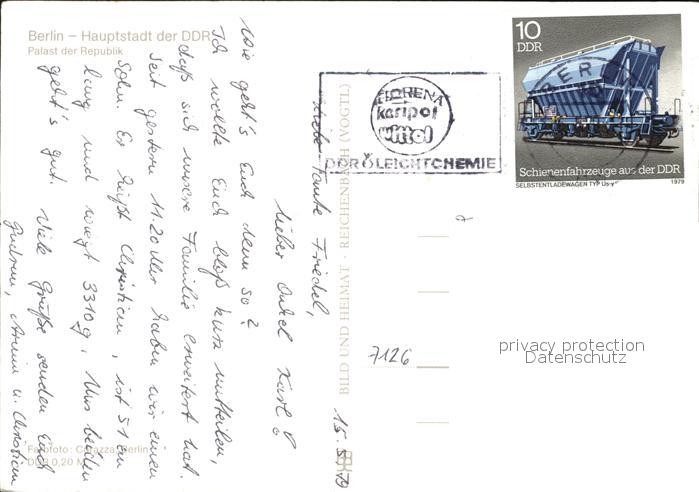 Berlin – Hauptstadt der DDR
Palast der Republik
15. 5. 79
Liebe Tante Friedel,
lieber Onkel Karl!
Wie geht's Euch denn so?
Ich wollte Euch bloß kurz mitteilen,
daß sich unsere Familie erweitert hat.
Seit gestern 11.20 Uhr haben wir einen
Sohn. Er heißt Christian, ist 51 cm
lang und wiegt 3310 g. Uns beiden
geht's gut. Viele Grüße senden Euch
Gudrun, Armin u. Christian
Farbfoto: Corazza, Berlin
DDR 0,20 M
BILD UND HEIMAT · REICHENBACH (VOGTL)
FLORENA
karipol
wittol
DDR LEICHTCHEMIE
BER
10
DDR
Schienenfahrzeuge aus der DDR
SELBSTENTLADEWAGEN TYP Us-y
1979
7126
privacy protection
Datenschutz